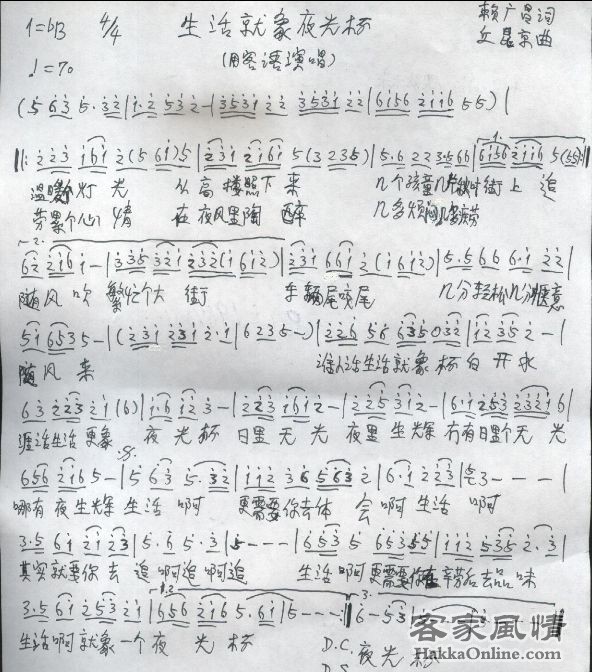 1=bB 4/4 生活就象夜光杯 赖广昌词
(用客语演唱) 丘晨京曲
♩=70
(5 6 3 5· 3 2 | 1· 2 5 3 2 - | 3 5 3 1 2 2 3 5 3 1 2 2 | 6 1 5 6 2 1 1 6 5 5) |
||: 2 2 3 1 6 1 2 (5 6 1) 5 | 2 3 1 2 1 6 1 5 (3 2 3 5) | 5· 6 2 2 3· 5 6 6 | 6 1 5 6 2 1 1 6 5 (5 5) :||
灯光 从高楼照下来 几个孩童 街上追
劳累个心情 在夜风里陶醉 几多烦
6 2 2 1 6 1 - | 3 3 5 3 2 1 2 3 2 (1 6 1 2) | 2 3 1 6 6 1 2 (1 6 1 2) | 5· 5 6 6 6· 1 2 2 |
随风吹 繁忙个大街 车颈尾咬尾 几分轻松几分惬意
5 1 6 5 3 5 - | (2 3 1 2 3 1 2· 1 | 6 2 3 5 -) | 2 2 6 5 6 6 3 5 0 3 2 | 1 2 3 5 2 - |
随风来 谁人话生活就象杯白开水
6 3 2 2 3 2 1 (6) | 1· 6 1 2 3 - | 2 2 3 1 6 1 2 - | 2 2 5 3 1 2 - | 6· 1 2 5 3 2 3 2 1 6 |
涯话生活更象 夜光杯 日里无光 夜里生辉 冇有日里个无光
6 5 6 2 1 6 5 - | 5 6 3 5· 3 2 | 1 1 2 3 6 5 6 3 2 | 6· 1 2 2 3 | 5 3 - - - |
哪有夜生辉 生活啊 更需要你去体会啊生活啊
3· 5 6 1 2 1 2 3 | 5· 6 5· 3 | 5 - - - | 6 5 3 5 6 5 3 5 5 | 1 1 2 5 3 5 2· 3 |
其实就要你去追啊追啊追 生活啊更需要你在辛劳后去品味
3· 5 6 1 2 5 3 2 1 | 6 5 6 2 1 6 5· 6 1 | 5 - - - :|| 6 - 5 3 |
生活啊就象一个夜光杯 D.C. 夜光杯
D.S.
客家風情
HakkaOnline.com